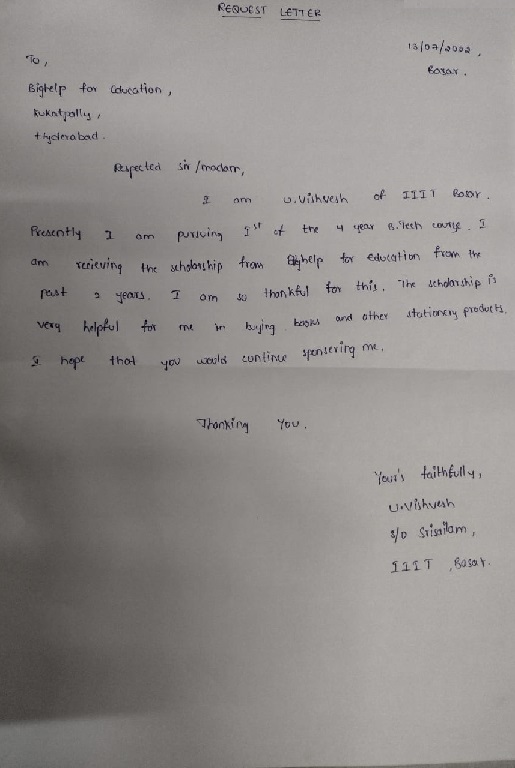 REQUEST LETTER
13/07/2022.
Basar.
To,
Bighelp for Education,
Kukatpally,
Hyderabad.
Respected Sir/madam,
I am U.Vishvesh of IIIT Basar.
Presently I am pursuing Ist of the 4 year B.Tech course. I
am recieving the scholarship from Bighelp for education from the
past 2 years. I am so thankful for this. The scholarship is
very helpful for me in buying books and other stationery products.
I hope that you would continue sponsering me.
Thanking You.
Your's faithfully,
U.Vishvesh
S/o Srisailam,
IIIT, Basar.